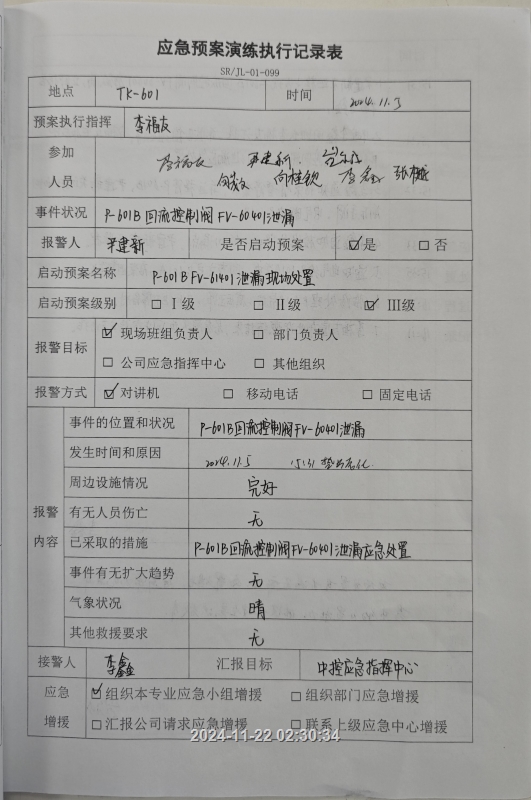 应急预案演练执行记录表
SR/JL-01-099
地点 TK-601 时间 2024.11.5
预案执行指挥 李福友
参加人员 李福友 尹建新
向桂钦 李鑫
事件状况 P-601B回流控制阀FV-60401泄漏
报警人 尹建新 是否启动预案 ☑是 □否
启动预案名称 P-601B FV-61401泄漏现场处置
启动预案级别 □Ⅰ级 □Ⅱ级 ☑Ⅲ级
报警目标 ☑现场班组负责人 □部门负责人
□公司应急指挥中心 □其他组织
报警方式 ☑对讲机 □移动电话 □固定电话
报警内容
事件的位置和状况 P-601B回流控制阀FV-60401泄漏
发生时间和原因 2024.11.5 15:31 垫片老化
周边设施情况 完好
有无人员伤亡 无
已采取的措施 P-601B回流控制阀FV-60401泄漏应急处置
事件有无扩大趋势 无
气象状况 晴
其他救援要求 无
接警人 李鑫 汇报目标 中控应急指挥中心
应急增援 ☑组织本专业应急小组增援 □组织部门应急增援
□汇报公司请求应急增援 □联系上级应急中心增援
2024-11-22 02:30:34